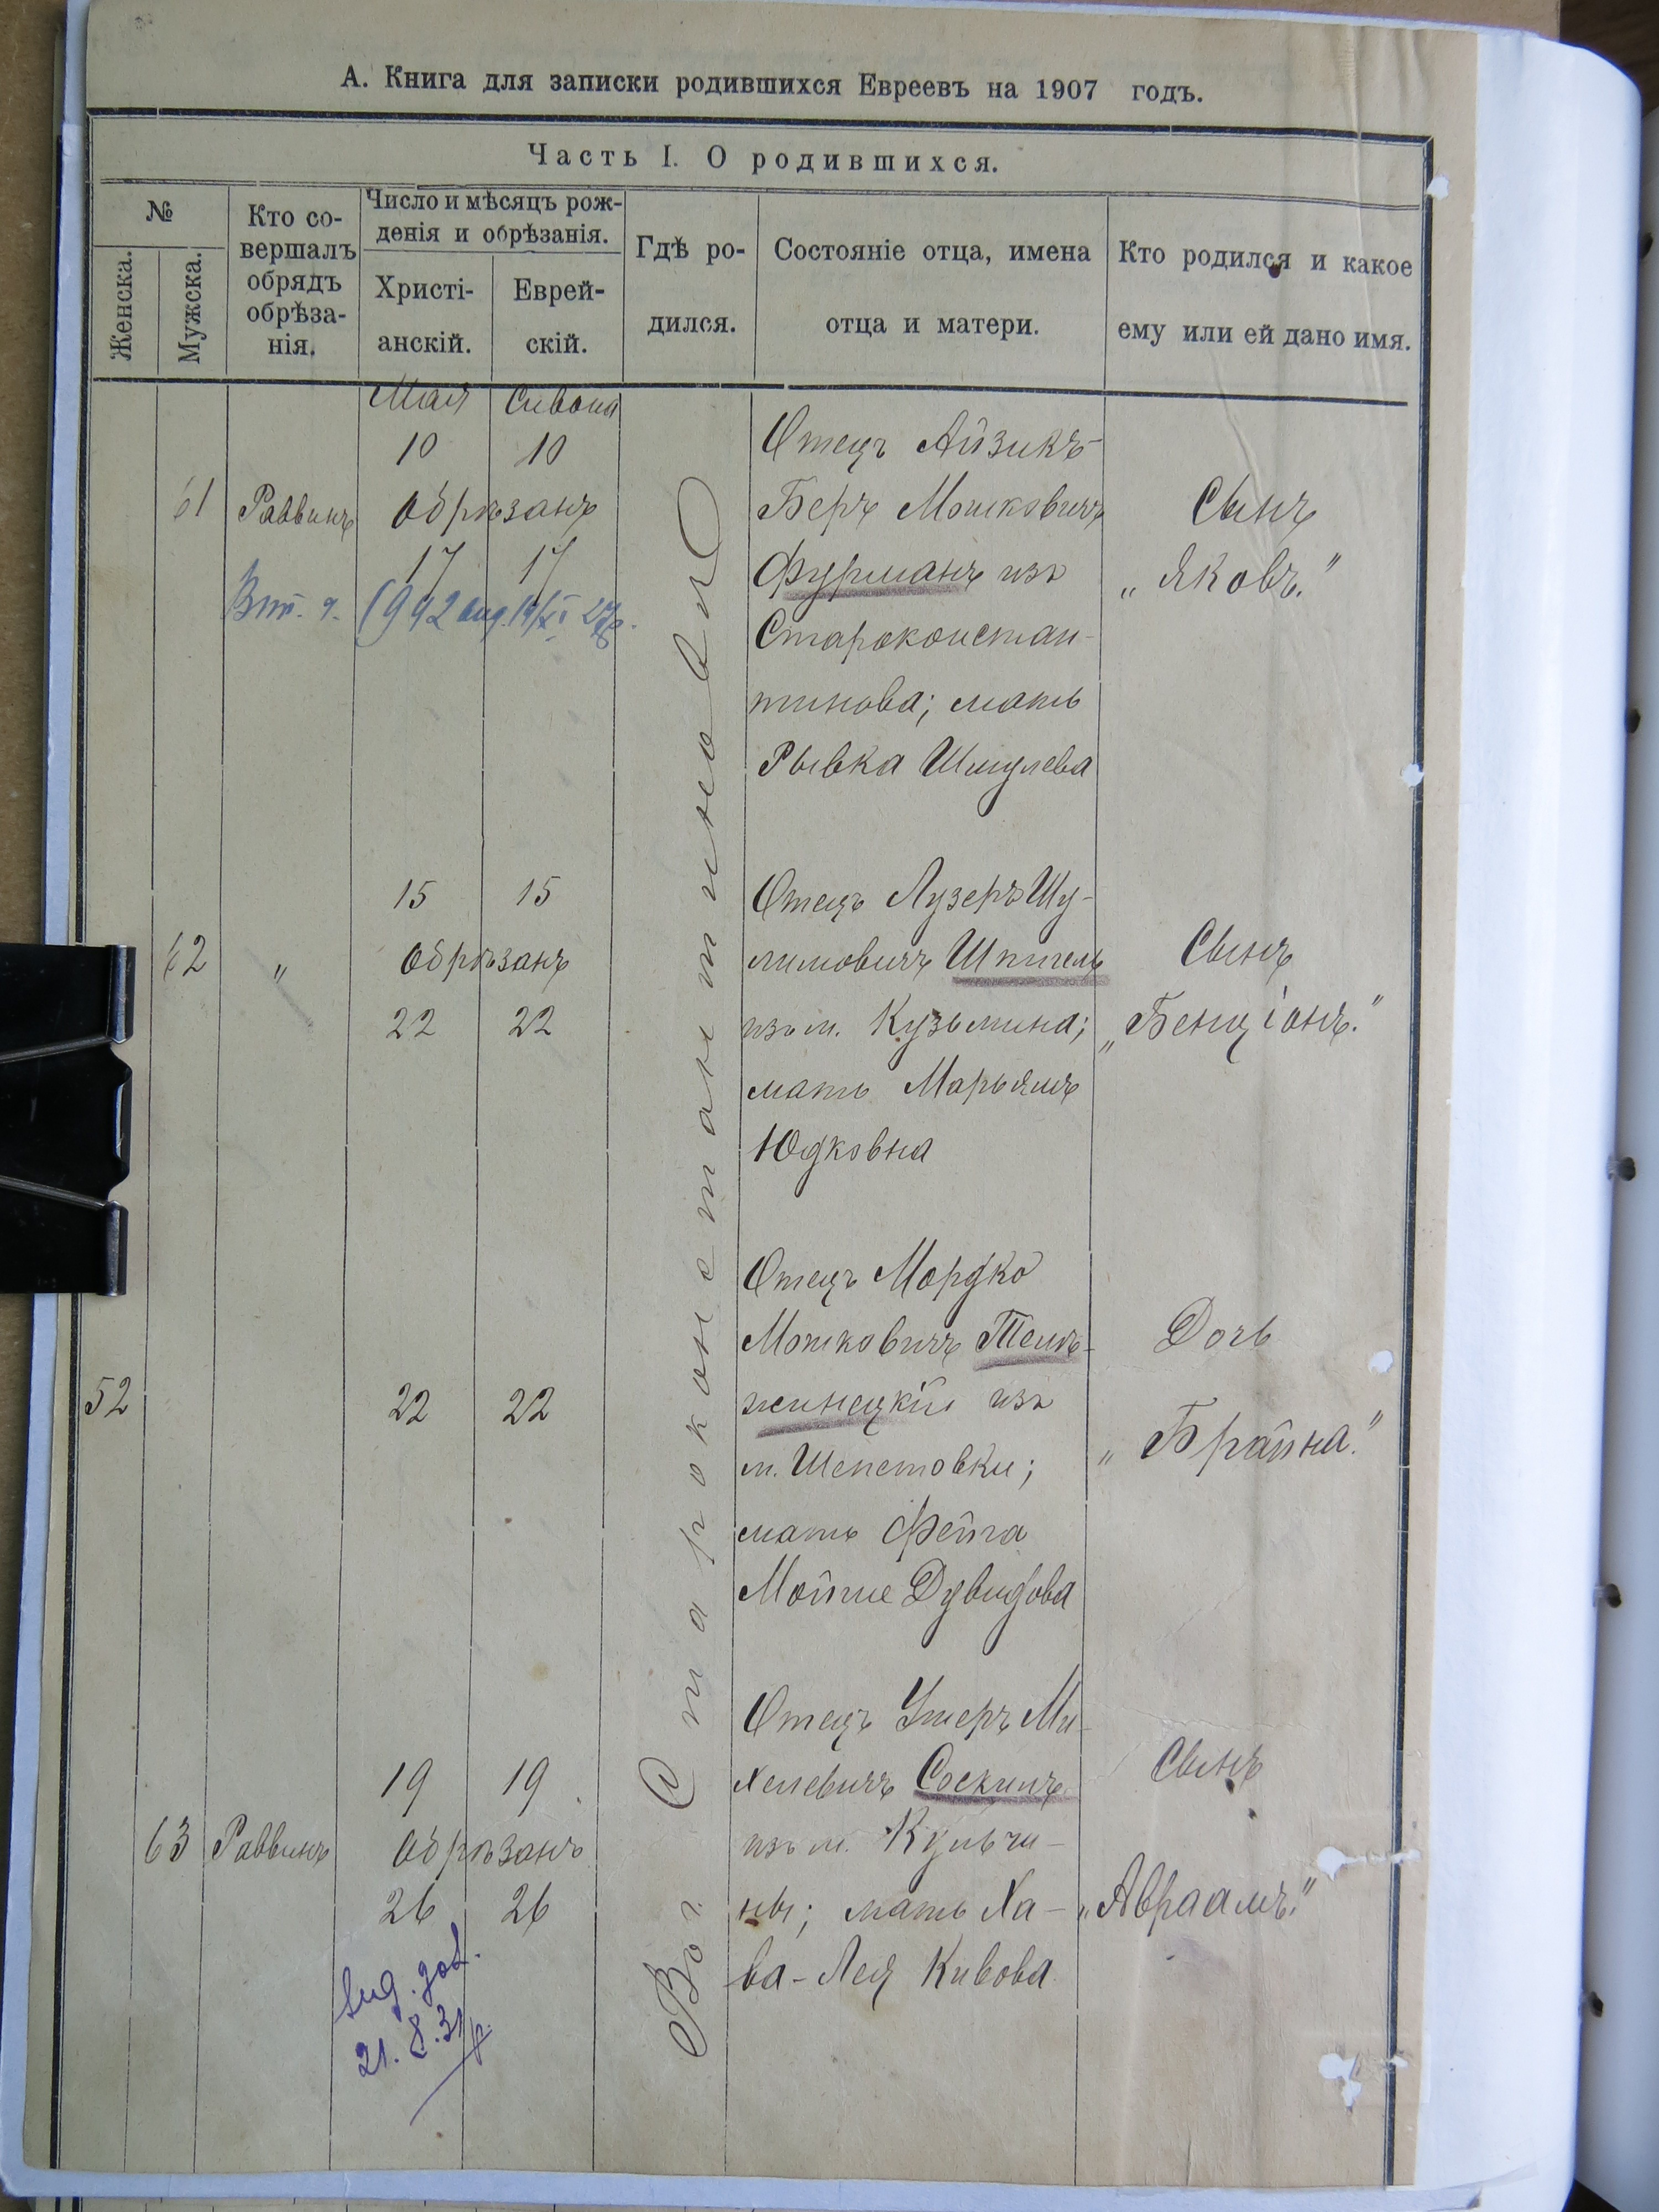 А. Книга для записки родившихся Евреевъ на 1907 годъ.
Часть I. О родившихся.
№
Женска.
Мужска.
Кто со-
вершалъ
обрядъ
обрѣза-
нія.
Число и мѣсяцъ рож-
денія и обрѣзанія.
Христі-
анскій.
Еврей-
скій.
Гдѣ ро-
дился.
Состояніе отца, имена
отца и матери.
Кто родился и какое
ему или ей дано имя.
Мая Сивана
Въ г. Староконстантиновѣ
61 Раввинъ
10 10
обрѣзанъ
17 17
Отецъ Айзикъ-
Беръ Мошковичъ
Фурманъ изъ
Староконстан-
тинова; мать
Рывка Шмулева
Сынъ
„Яковъ."
62 „
15 15
обрѣзанъ
22 22
Отецъ Лузеръ Шу-
лимовичъ Шпигель
изъ м. Кузьмина;
мать Марьямъ
Юдковна
Сынъ
„Бенціонъ."
52
22 22
Отецъ Мордко
Мошковичъ
изъ
м. Шепетовки;
мать Фейга
Дувидова
Дочь
„Брайна."
63 Раввинъ
19 19
обрѣзанъ
26 26
21.8.31р.
Отецъ Ушеръ Ми-
хелевичъ Соскинъ
изъ м. Кульчи-
ны; мать Ха-
ва-Лея Кивова
Сынъ
„Авраамъ."